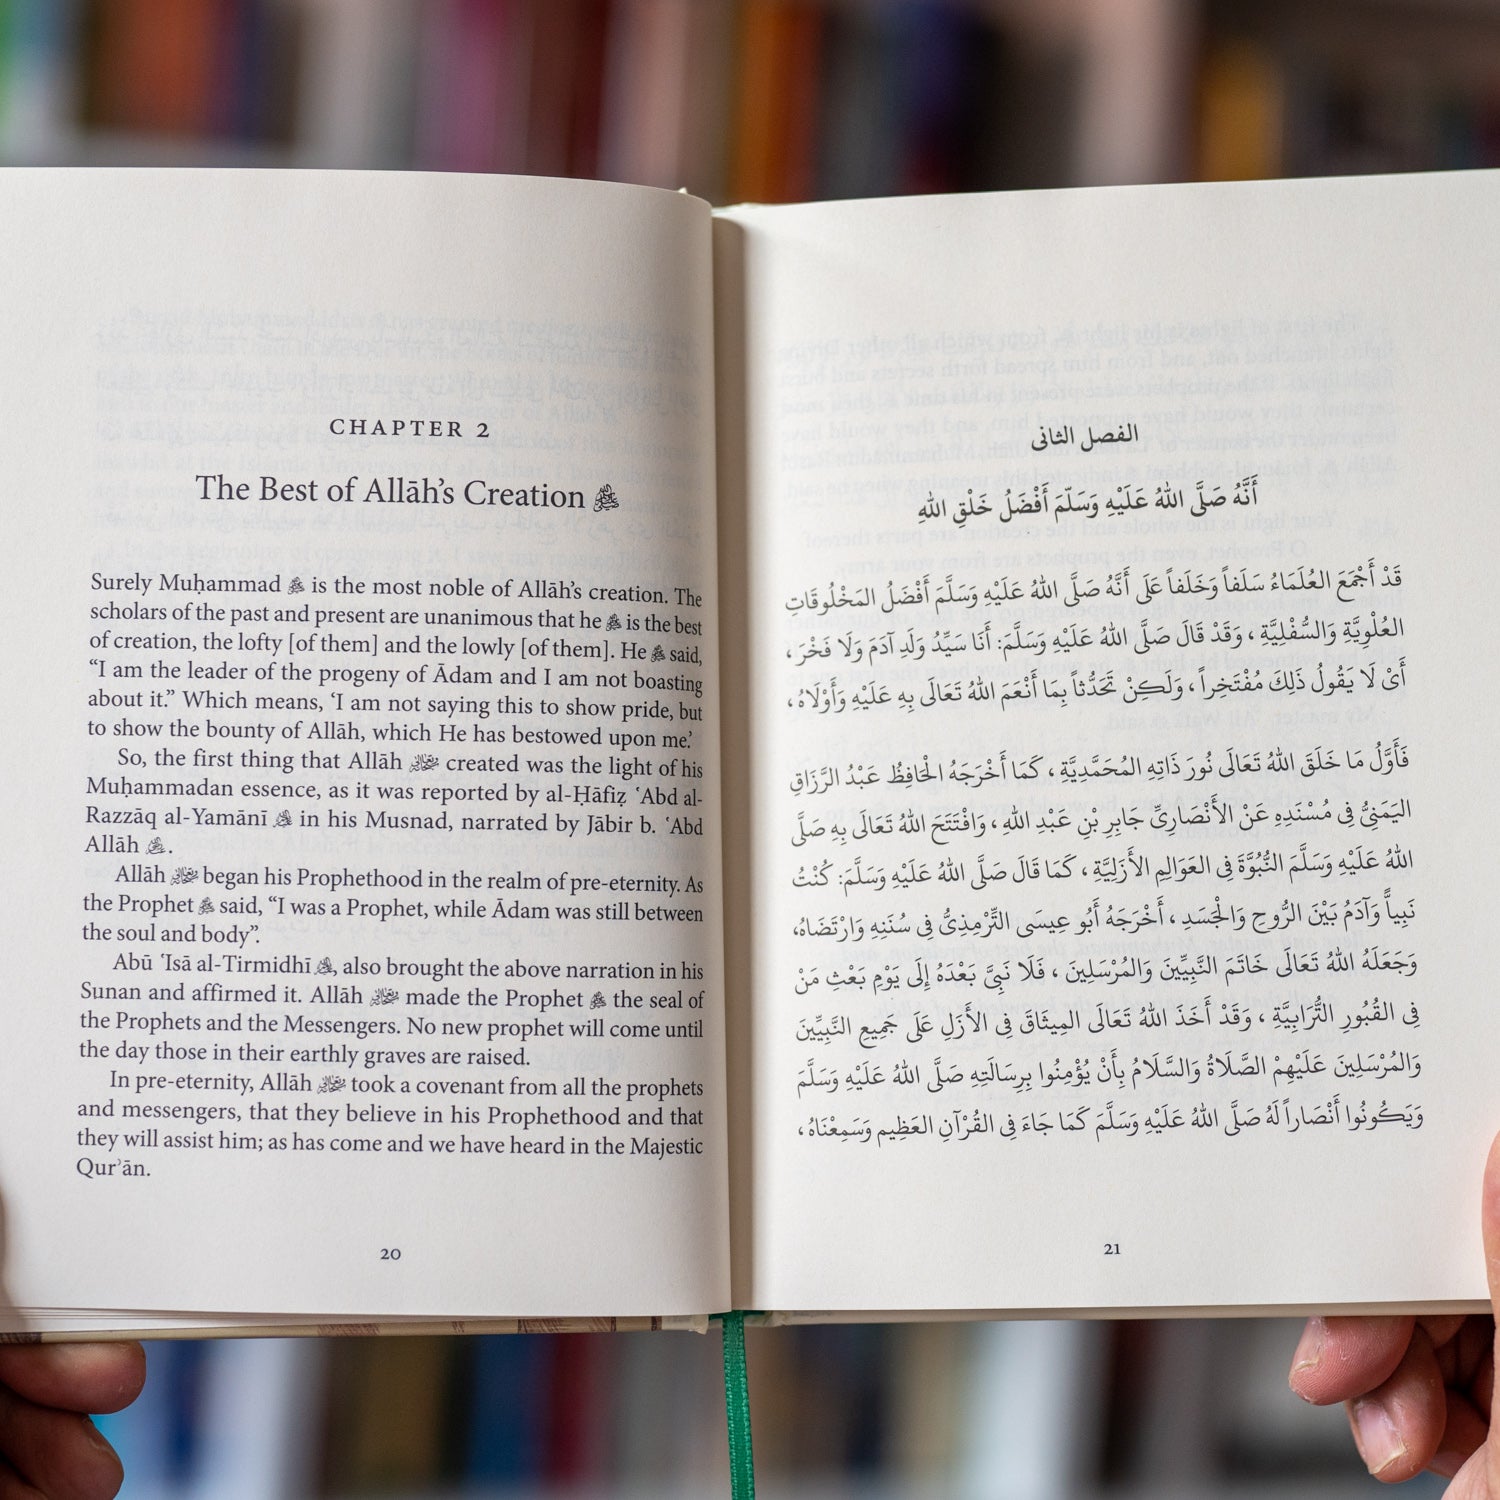 CHAPTER 2
The Best of Allāh's Creation ﷺ
Surely Muḥammad ﷺ is the most noble of Allāh's creation. The
scholars of the past and present are unanimous that he ﷺ is the best
of creation, the lofty [of them] and the lowly [of them]. He ﷺ said,
“I am the leader of the progeny of Ādam and I am not boasting
about it.” Which means, ‘I am not saying this to show pride, but
to show the bounty of Allāh, which He has bestowed upon me.’
So, the first thing that Allāh created was the light of his
Muḥammadan essence, as it was reported by al-Ḥāfiẓ ʿAbd al-
Razzāq al-Yamānī in his Musnad, narrated by Jābir b. ʿAbd
Allāh .
Allāh began his Prophethood in the realm of pre-eternity. As
the Prophet ﷺ said, “I was a Prophet, while Ādam was still between
the soul and body”.
Abū ʿIsā al-Tirmidhī , also brought the above narration in his
Sunan and affirmed it. Allāh made the Prophet ﷺ the seal of
the Prophets and the Messengers. No new prophet will come until
the day those in their earthly graves are raised.
In pre-eternity, Allāh took a covenant from all the prophets
and messengers, that they believe in his Prophethood and that
they will assist him; as has come and we have heard in the Majestic
Qurʾān.
20
الفصل الثانى
أَنَّهُ صَلَّى اللهُ عَلَيْهِ وَسَلّمَ أَفْضَلُ خَلْقِ اللهِ
قَدْ أَجْمَعَ العُلَمَاءُ سَلَفاً وَخَلَفاً عَلَى أَنَّهُ صَلَّى اللهُ عَلَيْهِ وَسَلَّمَ أَفْضَلُ المَخْلُوقَاتِ
العُلْوِيَّةِ وَالسُّفْلِيَّةِ ، وَقَدْ قَالَ صَلَّى اللهُ عَلَيْهِ وَسَلَّمَ: أَنَا سَيِّدُ وَلَدِ آدَمَ وَلَا فَخْرَ ،
أَىْ لَا يَقُولُ ذَلِكَ مُفْتَخِراً ، وَلَكِنْ تَحَدُّثاً بِمَا أَنْعَمَ اللهُ تَعَالَى بِهِ عَلَيْهِ وَأَوْلَاهُ ،
فَأَوَّلُ مَا خَلَقَ اللهُ تَعَالَى نُورَ ذَاتِهِ المُحَمَّدِيَّةِ ، كَمَا أَخْرَجَهُ الْحَافِظُ عَبْدُ الرَّزَاقِ
اليَمَنِيُّ فِى مُسْنَدِهِ عَنْ الأَنْصَارِىِّ جَابِرِ بْنِ عَبْدِ اللهِ ، وَافْتَتَحَ اللهُ تَعَالَى بِهِ صَلَّى
اللهُ عَلَيْهِ وَسَلَّمَ النُّبُوَّةَ فِى العَوَالِمِ الأَزَلِيَّةِ ، كَمَا قَالَ صَلَّى اللهُ عَلَيْهِ وَسَلَّمَ: كُنْتُ
نَبِياًّ وَآدَمُ بَيْنَ الرُّوحِ وَالْجَسَدِ ، أَخْرَجَهُ أَبُو عِيسَى التِّرْمِذِىُّ فِى سُنَنِهِ وَارْتَضَاهُ،
وَجَعَلَهُ اللهُ تَعَالَى خَاتَمَ النَّبِيِّينَ وَالمُرْسَلِينَ ، فَلَا نَبِىَّ بَعْدَهُ إِلَى يَوْمِ بَعْثِ مَنْ
فِى القُبُورِ التُّرَابِيَّةِ ، وَقَدْ أَخَذَ اللهُ تَعَالَى المِيثَاقَ فِى الأَزَلِ عَلَى جَمِيعِ النَّبِيِّينَ
وَالمُرْسَلِينَ عَلَيْهِمْ الصَّلَاةُ وَالسَّلَامُ بِأَنْ يُؤْمِنُوا بِرِسَالَتِهِ صَلَّى اللهُ عَلَيْهِ وَسَلَّمَ
وَيَكُونُوا أَنْصَاراً لَهُ صَلَّى اللهُ عَلَيْهِ وَسَلَّمَ كَمَا جَاءَ فِى القُرْآنِ العَظِيمِ وَسَمِعْنَاهُ ،
21